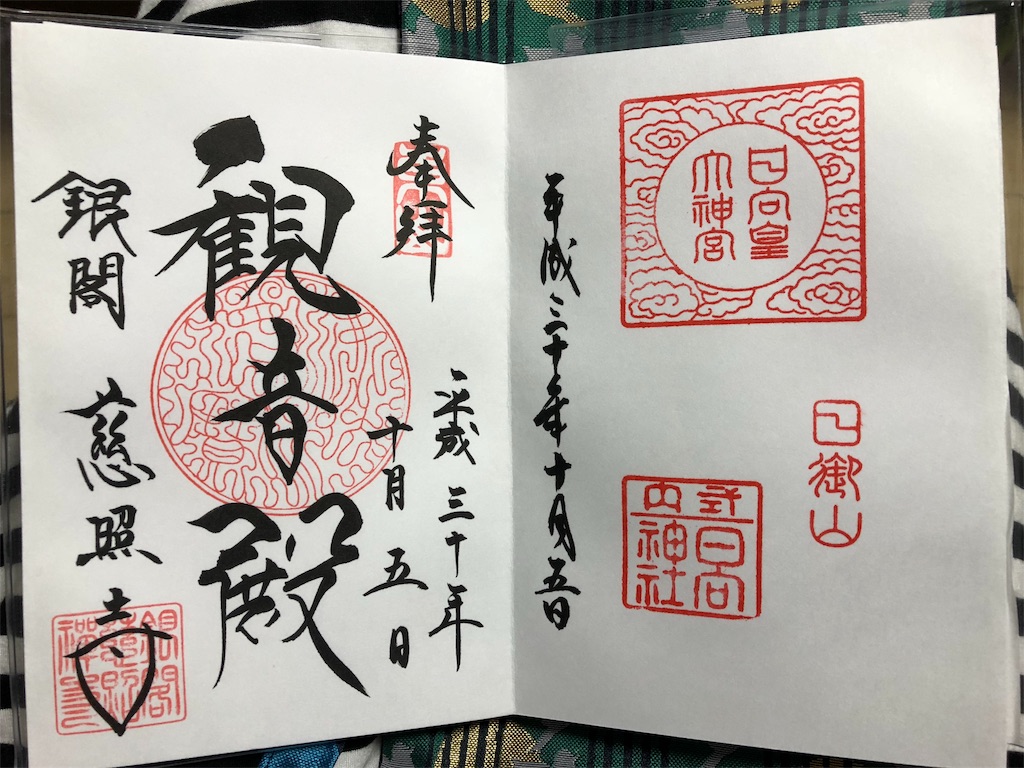 日向皇
大神宮
日御山
式日向
内神社
平成三十年十月五日
奉拝
平成三十年
十月五日
観音殿
銀閣 慈照寺